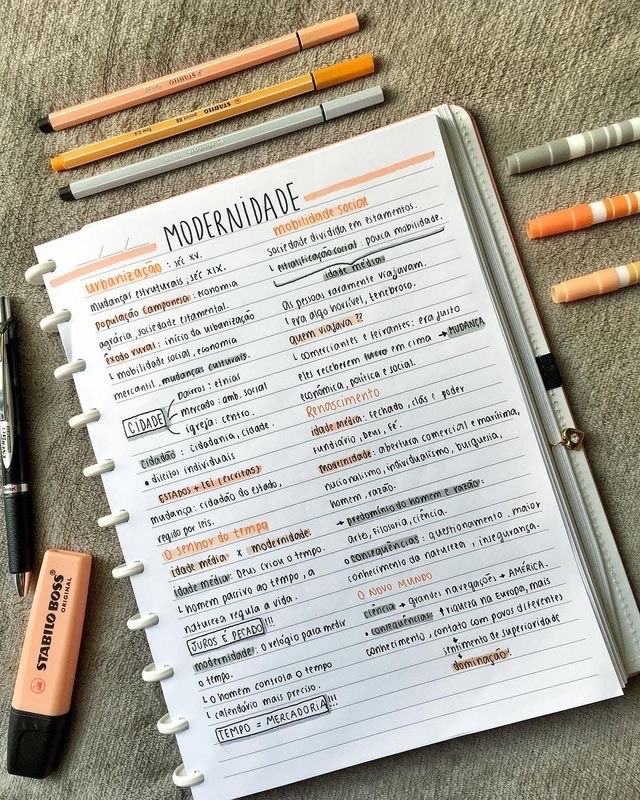 STABILO
STABILO point 88 fine 0,4
STABILO
MODERNIDADE
urbanização : séc XV.
mudanças estruturais, séc XIX.
População Camponesa : economia
agrária, sociedade estamental.
Êxodo rural : início da urbanização
L mobilidade social, economia
mercantil, mudanças culturais.
CIDADE
bairros : etnias
mercado : amb. social
igreja : centro.
cidadão : cidadania, cidade.
• direitos individuais
ESTADOS + LEI (escritas)
mudança : cidadão do estado,
regido por leis.
O senhor do tempo
idade média x modernidade.
idade média : Deus criou o tempo.
L homem passivo ao tempo, a
natureza regula a vida.
JUROS É PECADO !!!
modernidade : O relógio para medir
o tempo.
L o homem controla o tempo
L calendário mais preciso.
TEMPO = MERCADORIA !!!
mobilidade social
sociedade dividida em estamentos.
L estratificação social : pouca mobilidade.
idade média
as pessoas raramente viajavam.
L era algo horrível, tenebroso.
quem viajava ??
L comerciantes e feirantes : era justo
eles receberem lucro em cima → MUDANÇA
econômica, política e social.
Renascimento
idade média : fechado, clãs e poder
fundiário, Deus, fé.
Modernidade : abertura comercial e marítima,
nacionalismo, individualismo, burguesia,
homem, razão.
→ predomínio do homem e razão :
arte, filosofia, ciência.
consequências : questionamento, maior
conhecimento da natureza, insegurança.
O NOVO MUNDO
ciência → grandes navegações → AMÉRICA.
• consequências : ↑ riqueza na Europa, mais
conhecimento, contato com povos diferentes
↓
sentimento de superioridade
↓
dominação!
STABILO BOSS
ORIGINAL